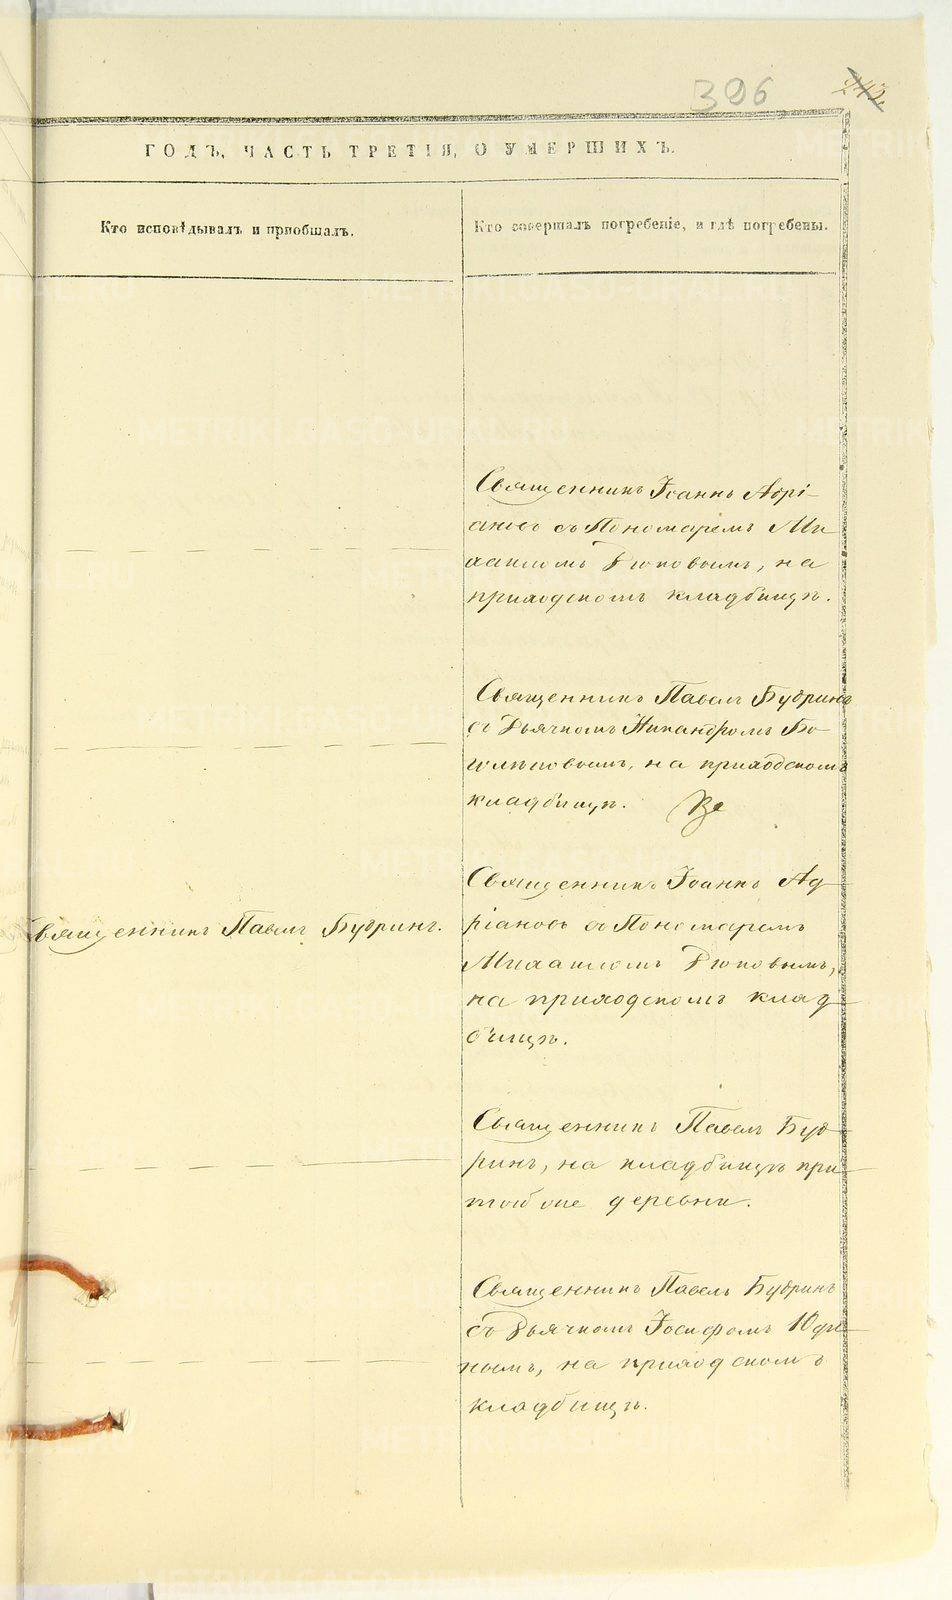 396
242
ГОДЪ, ЧАСТЬ ТРЕТІЯ, О УМЕРШИХЪ.
Кто исповѣдывалъ и пріобщалъ.
Кто совершалъ погребеніе, и гдѣ погребены.
Священникъ Іоаннъ Адрі-
ановъ съ Пономаремъ Ми
хаиломъ Дюповымъ, на
приходскомъ кладбищѣ.
Священникъ Павелъ Будринъ
съ Дьячкомъ Никандромъ Бо-
на приходскомъ
кладбищѣ.
Священникъ Павелъ Будринъ.
Священникъ Іоаннъ Ад
ріановъ съ Пономаремъ
Михаиломъ Дюповымъ,
на приходскомъ клад
бищѣ.
Священникъ Павелъ Буд
ринъ, на кладбищѣ при
той же деревни.
Священникъ Павелъ Будринъ
съ Дьячкомъ Іосифомъ
на приходскомъ
кладбищѣ.
METRIKI.GASO-URAL.RU